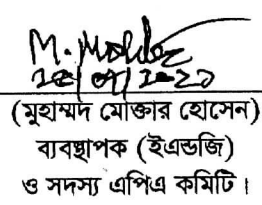 (মুহাম্মদ মোক্তার হোসেন)
ব্যবস্থাপক (ইএন্ডজি)
ও সদস্য এপিএ কমিটি।